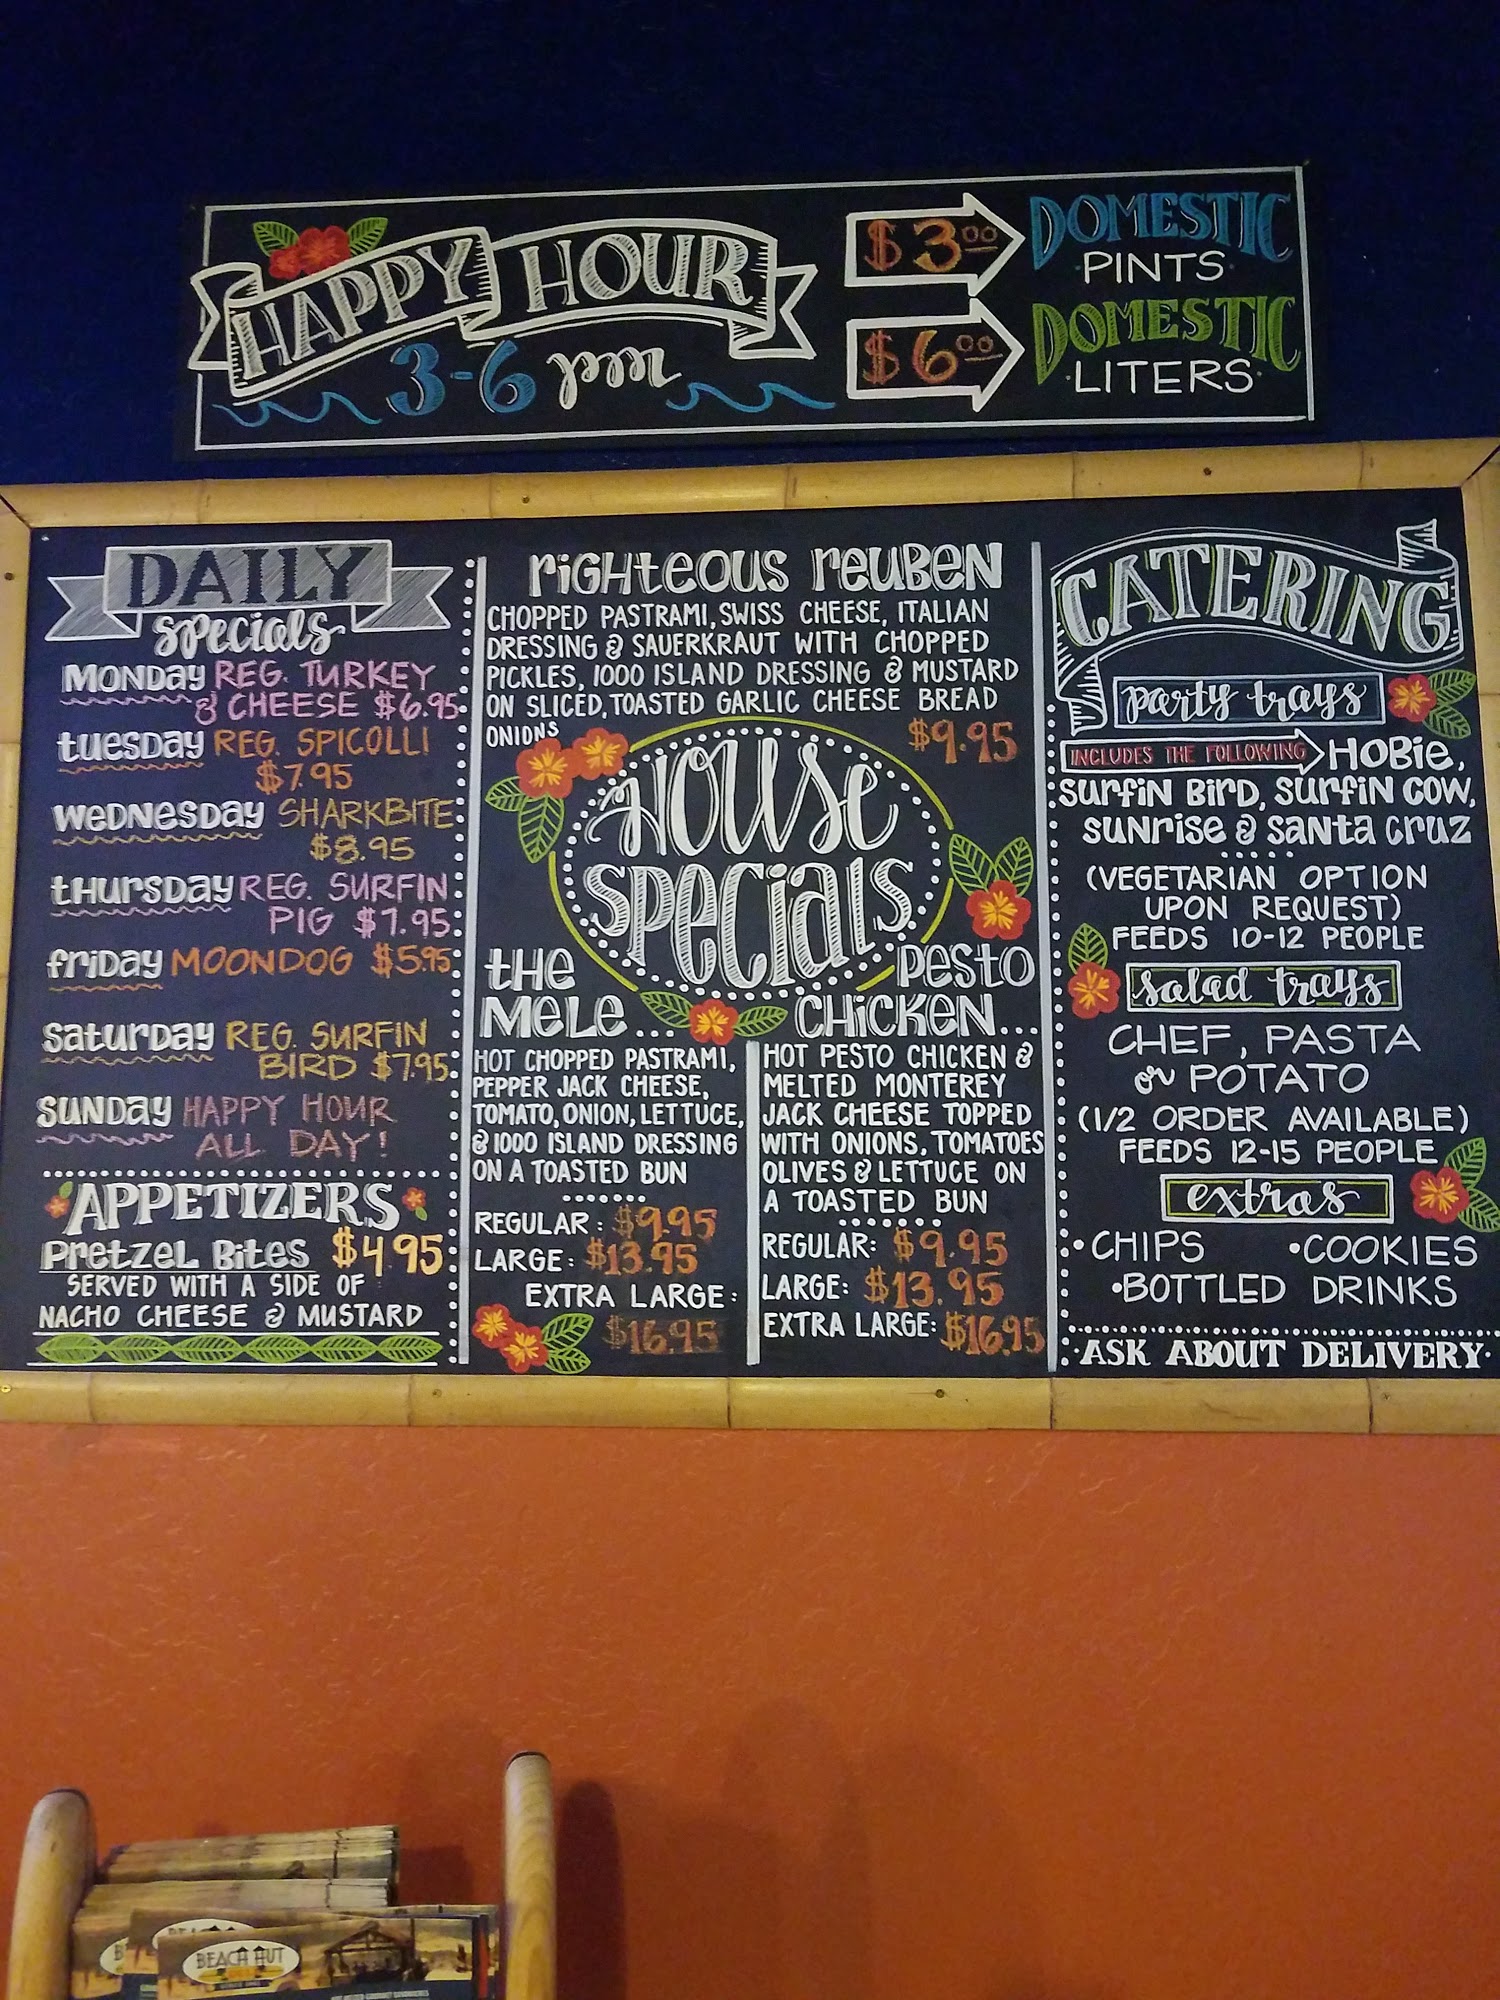 HAPPY HOUR
3-6 pm
$3.00
DOMESTIC
·PINTS·
$6.00
DOMESTIC
·LITERS·
DAILY
specials
MONDAY REG. TURKEY
& CHEESE $6.95
tuesday REG. SPICOLLI
$7.95
WEDNESDAY SHARKBITE
$8.95
tHursday REG. SURFIN
PIG $7.95
friday MOONDOG $5.95
saturday REG. SURFIN
BIRD $7.95
SUNDAY HAPPY HOUR
ALL DAY!
APPETIZERS
Pretzel Bites $4.95
SERVED WITH A SIDE OF
NACHO CHEESE & MUSTARD
riGHteous reuBeN
CHOPPED PASTRAMI, SWISS CHEESE, ITALIAN
DRESSING & SAUERKRAUT WITH CHOPPED
PICKLES, 1000 ISLAND DRESSING & MUSTARD
ON SLICED, TOASTED GARLIC CHEESE BREAD
ONIONS
$9.95
HOUSE
SPECIALS
tHE
MELE...
HOT CHOPPED PASTRAMI,
PEPPER JACK CHEESE,
TOMATO, ONION, LETTUCE,
& 1000 ISLAND DRESSING
ON A TOASTED BUN
REGULAR: $9.95
LARGE: $13.95
EXTRA LARGE:
$16.95
Pesto
CHiCKEN...
HOT PESTO CHICKEN &
MELTED MONTEREY
JACK CHEESE TOPPED
WITH ONIONS, TOMATOES
OLIVES & LETTUCE ON
A TOASTED BUN
REGULAR: $9.95
LARGE: $13.95
EXTRA LARGE: $16.95
CATERING
party trays
INCLUDES THE FOLLOWING HOBie,
surfiN BirD, surfiN COW,
SUNrise & saNta Cruz
(VEGETARIAN OPTION
UPON REQUEST)
FEEDS 10-12 PEOPLE
salad trays
CHEF, PASTA
or POTATO
(1/2 ORDER AVAILABLE)
FEEDS 12-15 PEOPLE
extras
•CHIPS •COOKIES
•BOTTLED DRINKS
·ASK ABOUT DELIVERY·
BEACH HUT